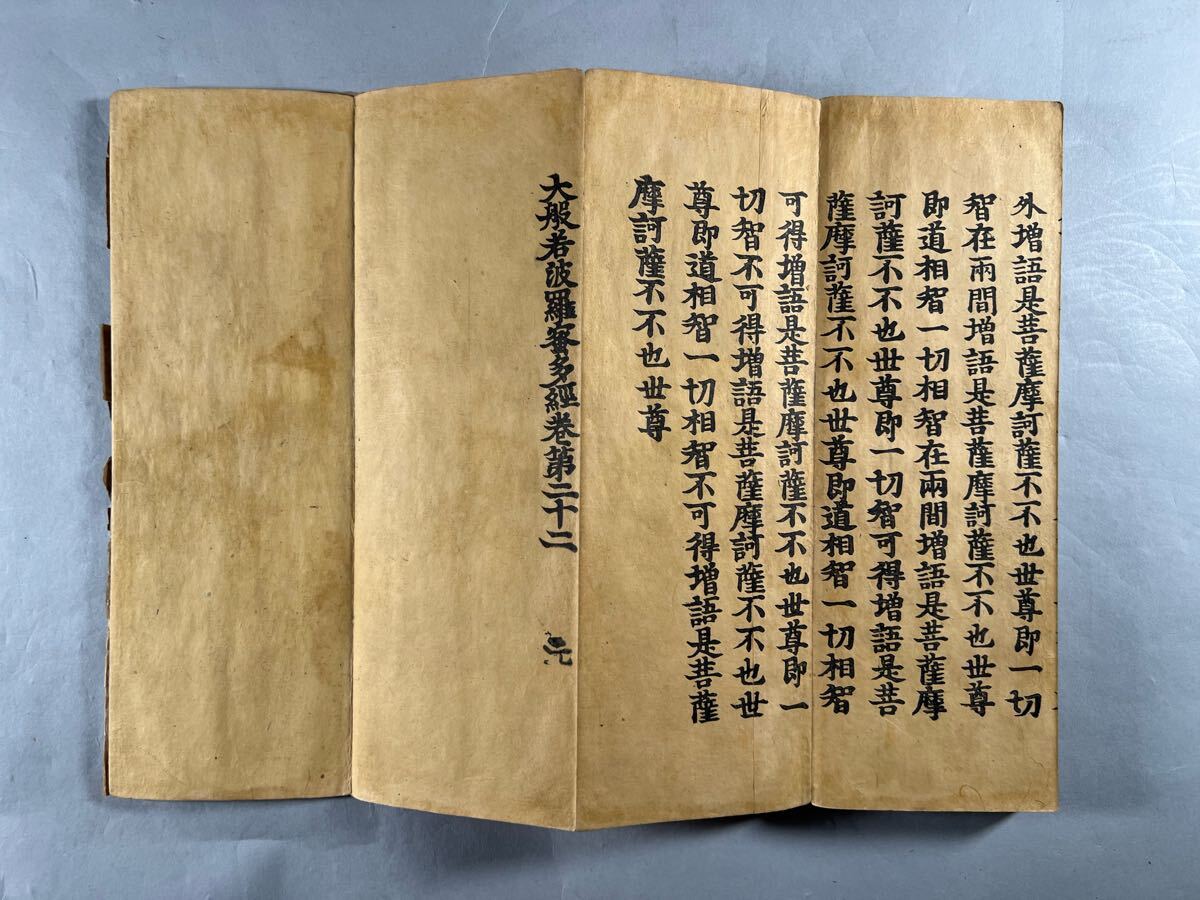 外增語是菩薩摩訶薩不不也世尊即一切
智在兩間增語是菩薩摩訶薩不不也世尊
即道相智一切相智在兩間增語是菩薩摩
訶薩不不也世尊即一切智可得增語是菩
薩摩訶薩不不也世尊即道相智一切相智
可得增語是菩薩摩訶薩不不也世尊即一
切智不可得增語是菩薩摩訶薩不不也世
尊即道相智一切相智不可得增語是菩薩
摩訶薩不不也世尊
大般若波羅蜜多經卷第二十二